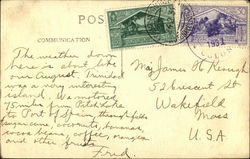 POS
COMMUNICATION
The weather down
here is about like
our August. Trinidad
was a very interesting
island. We motored
75 miles from Pitch Lake
to Port of Spain through fields
sugar cane, coconuts, bananas,
cocoa beans, coffee, oranges
and other fruits.
Fred.
Mrs James H. Keough
52 Crescent St
Wakefield
Mass
U.S.A